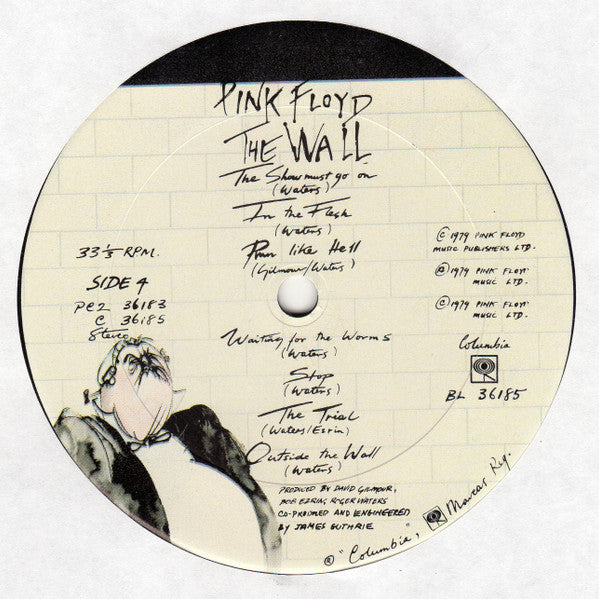 PINK FLOYD
THE WALL
The Show must go on
(Waters)
In the Flesh
(Waters)
Run like Hell
(Gilmour/Waters)
33 1/3 RPM.
SIDE 4
PC2 36183
C 36185
Stereo
© 1979 PINK FLOYD
MUSIC PUBLISHERS LTD.
℗ 1979 PINK FLOYD
MUSIC LTD.
© 1979 PINK FLOYD
MUSIC LTD.
Columbia
BL 36185
Waiting for the Worms
(Waters)
Stop
(Waters)
The Trial
(Waters/Ezrin)
Outside the Wall
(Waters)
PRODUCED BY DAVID GILMOUR,
BOB EZRIN, ROGER WATERS
CO-PRODUCED AND ENGINEERED
BY JAMES GUTHRIE
® "Columbia", Marcas Reg.